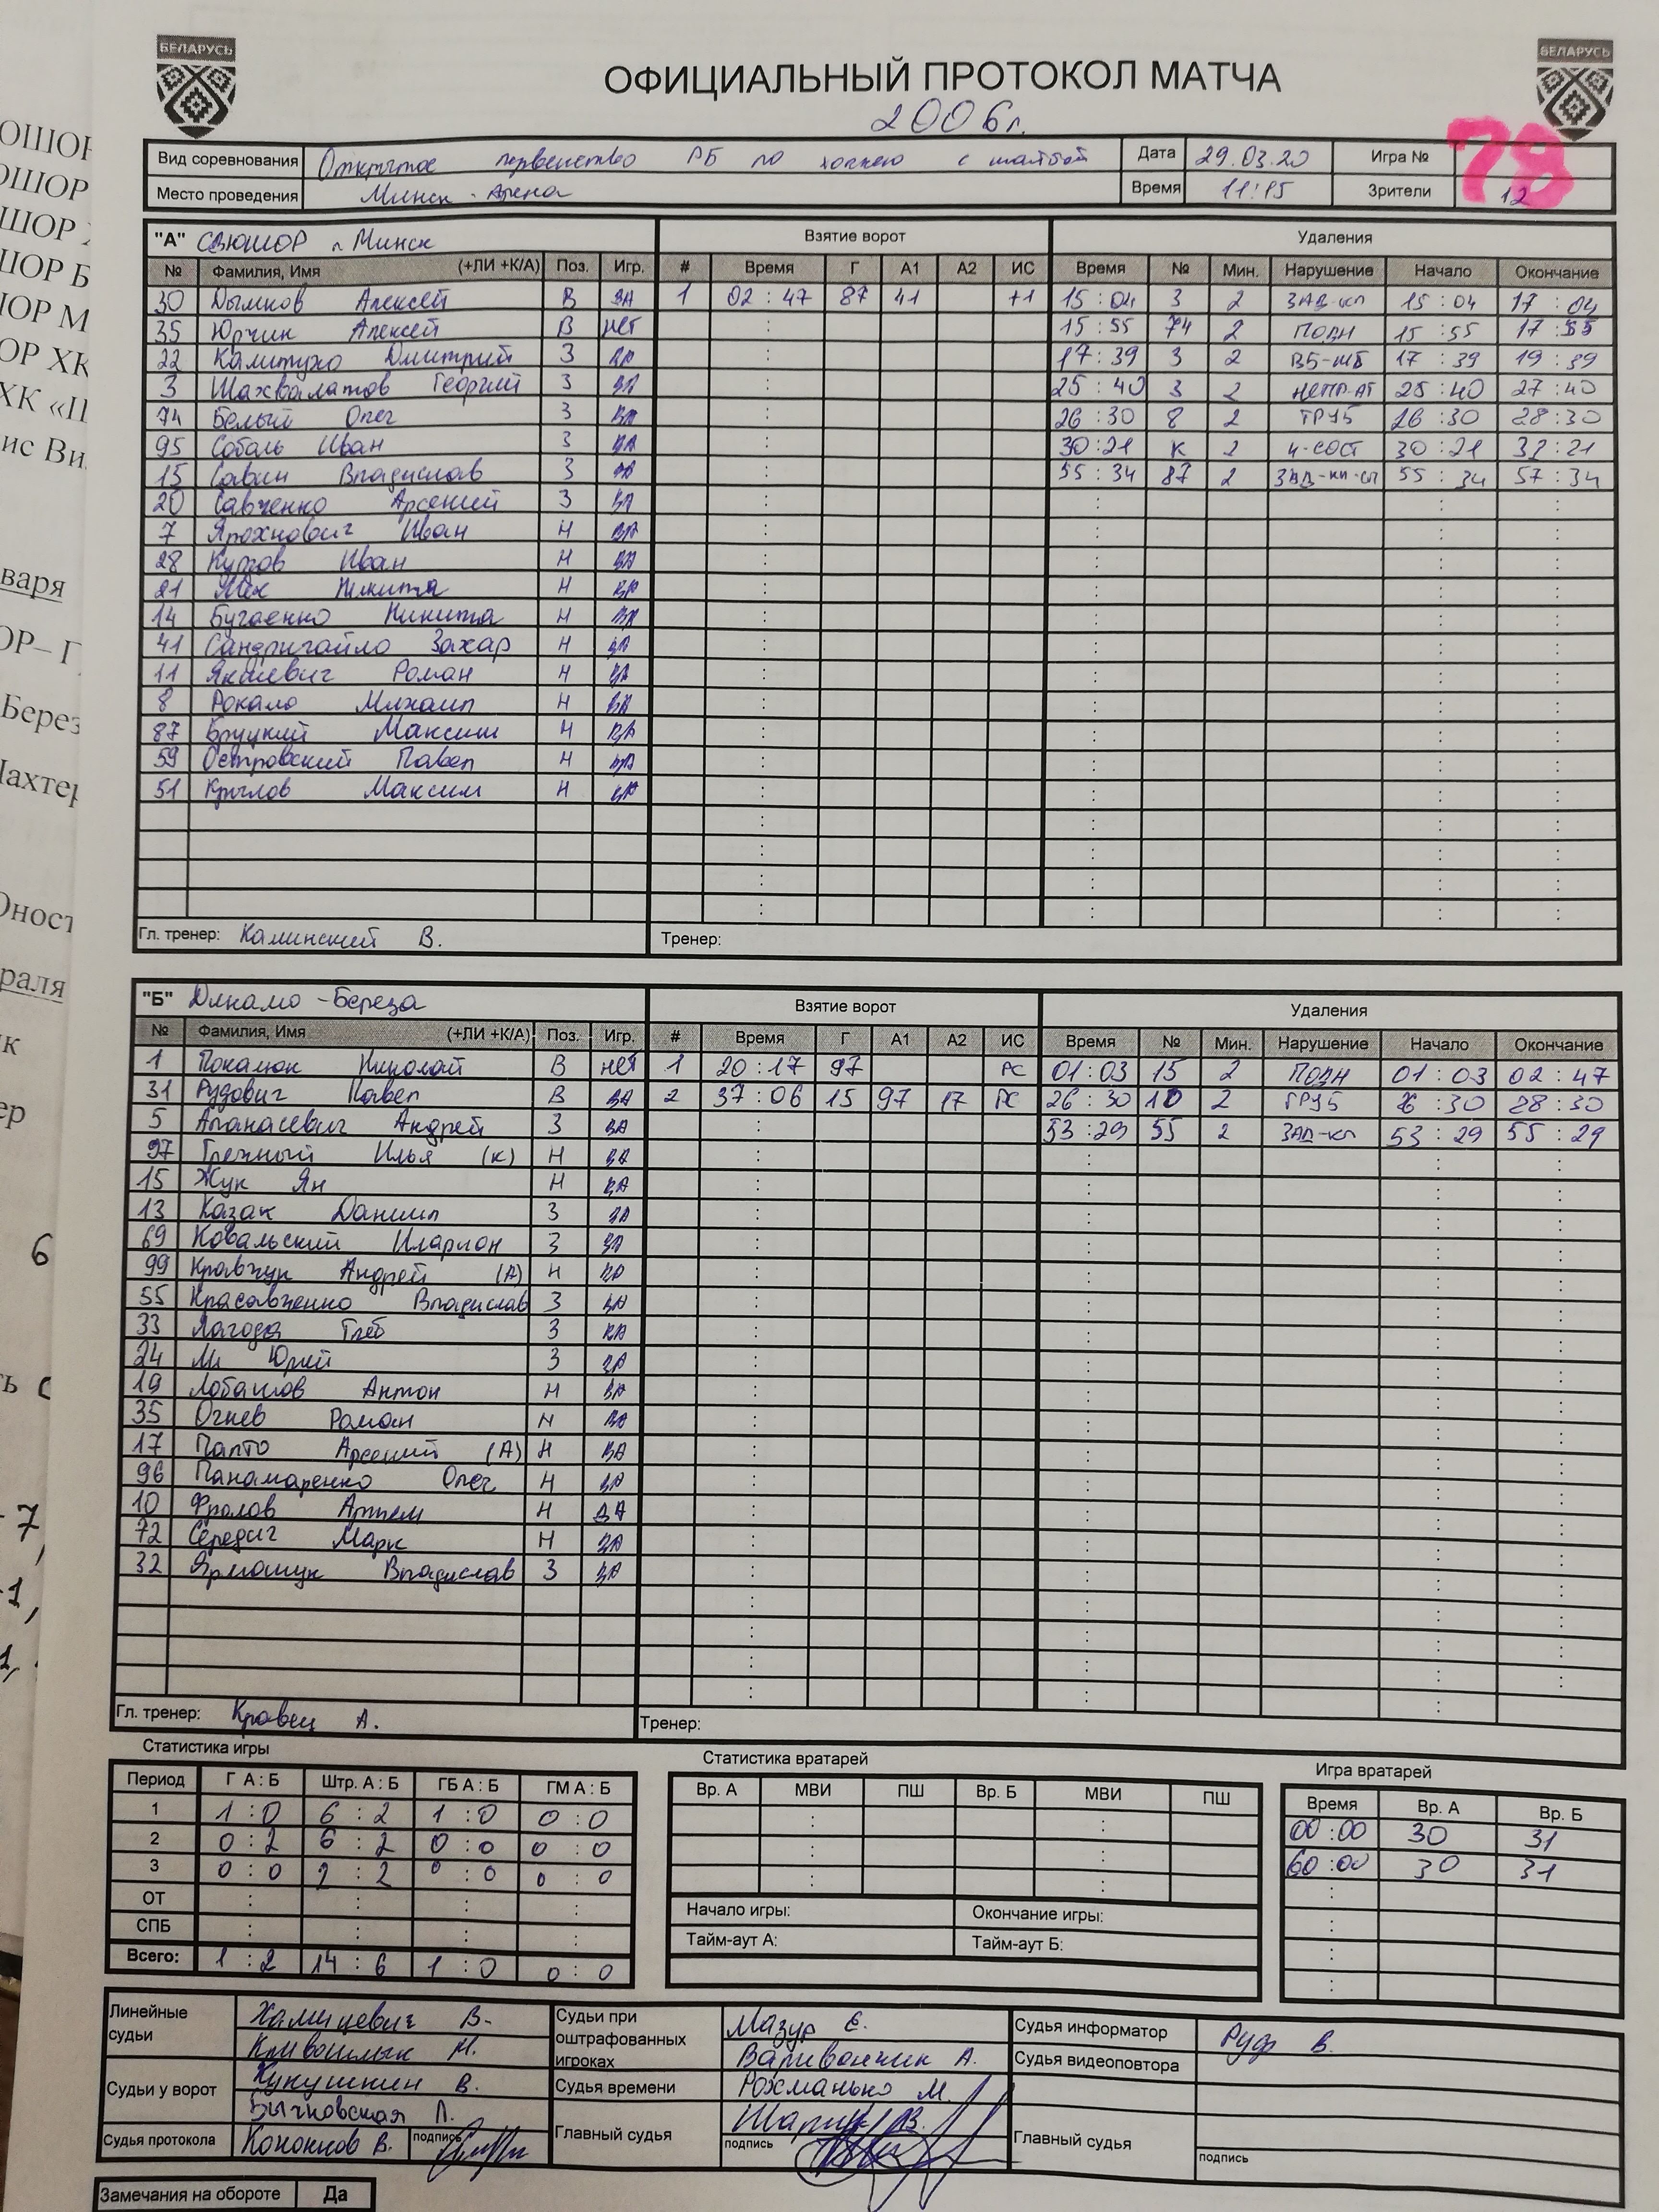 БЕЛАРУСЬ
БЕЛАРУСЬ
ОФИЦИАЛЬНЫЙ ПРОТОКОЛ МАТЧА
2006г.
Вид соревнования Открытое первенство РБ по хоккею с шайбой Дата 29.03.20 Игра № 78
Место проведения Минск-Арена Время 11:15 Зрители 12
"А" СДЮШОР г. Минск Взятие ворот Удаления
№ Фамилия, Имя (+ЛИ +К/А) Поз. Игр. # Время Г А1 А2 ИС Время № Мин. Нарушение Начало Окончание
30 Дымков Алексей В ДА 1 02:47 87 41 +1 15:04 3 2 ЗАД-КЛ 15:04 17:04
35 Юрчик Алексей В нет 15:55 74 2 ПОДН 15:55 17:55
22 Калитухо Дмитрий З ДА 17:39 3 2 ВБ-ШБ 17:39 19:39
3 Шахвалатов Георгий З ДА 25:40 3 2 НЕПР-АТ 25:40 27:40
74 Белый Олег З ДА 26:30 8 2 ГРУБ 26:30 28:30
95 Соболь Иван З ДА 30:21 К 2 Ч-СОСТ 30:21 32:21
15 Савич Владислав З ДА 55:34 87 2 55:34 57:34
20 Савченко Арсений З ДА
7 Ярохнович Иван Н ДА
28 Иван Н ДА
21 Мех Никита Н ДА
14 Бугаенко Никита Н ДА
41 Сандригайло Захар Н ДА
11 Роман Н ДА
8 Рокало Михаил Н ДА
87 Бруцкий Максим Н ДА
59 Островский Павел Н ДА
51 Крылов Максим Н ДА
Гл. тренер: Калинский В. Тренер:
"Б" Динамо-Береза Взятие ворот Удаления
№ Фамилия, Имя (+ЛИ +К/А) Поз. Игр. # Время Г А1 А2 ИС Время № Мин. Нарушение Начало Окончание
1 Покалюк Николай В нет 1 20:17 97 РС 01:03 15 2 ПОДН 01:03 02:47
31 Рудович Павел В ДА 2 37:06 15 97 17 РС 26:30 10 2 ГРУБ 26:30 28:30
5 Апанасевич Андрей З ДА 53:29 55 2 ЗАД-КЛ 53:29 55:29
97 Грежный Илья (К) Н ДА
15 Жук Ян Н ДА
13 Казак Даниил З ДА
69 Ковальский Иларион З ДА
99 Кравчук Андрей (А) Н ДА
55 Красавченко Владислав З ДА
33 Лагода Глеб З ДА
24 Ли Юрий З ДА
19 Лобашов Антон Н ДА
35 Огнев Роман Н ДА
17 Палто Арсений (А) Н ДА
96 Панамаренко Олег Н ДА
10 Фролов Артем Н ДА
72 Середич Марк Н ДА
32 Ярмошук Владислав З ДА
Гл. тренер: Кравец А. Тренер:
Статистика игры Статистика вратарей Игра вратарей
Период Г А : Б Штр. А : Б ГБ А : Б ГМ А : Б Вр. А МВИ ПШ Вр. Б МВИ ПШ Время Вр. А Вр. Б
1 1:0 6:2 1:0 0:0 00:00 30 31
2 0:2 6:2 0:0 0:0 60:00 30 31
3 0:0 2:2 0:0 0:0
ОТ
СПБ
Всего: 1:2 14:6 1:0 0:0
Начало игры: Окончание игры:
Тайм-аут А: Тайм-аут Б:
Линейные судьи Хамицевич В. Кривошлык Н.
Судьи при оштрафованных игроках Мазур Е. Варивончик А.
Судья информатор Руф В.
Судья видеоповтора
Судьи у ворот Кукушкин В. Бычковская Л.
Судья времени Рохманько М.
Судья протокола Кононов В. подпись
Главный судья подпись
Главный судья подпись
Замечания на обороте Да